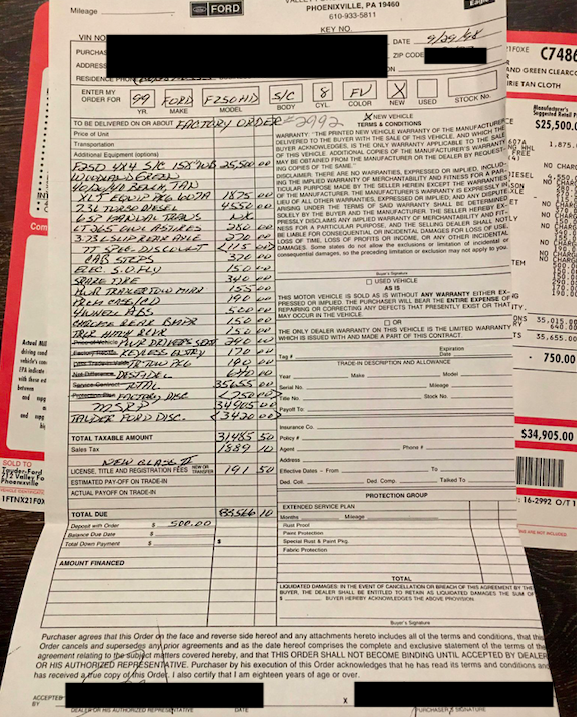 VALLEY FO
Mileage
Ford
FORD
PHOENIXVILLE, PA 19460
610-933-5811
Eagle
KEY NO.
VIN NO
DATE 9/29/98
PURCHAS
ZIP CODE
ADDRESS
RESIDENCE PHONE
ENTER MY
ORDER FOR
99 FORD F250HD S/C 8 FU X
YR. MAKE MODEL BODY CYL. COLOR NEW USED STOCK No.
TO BE DELIVERED ON OR ABOUT FACTORY ORDER #2992
Price of Unit
Transportation
Additional Equipment (options)
F250 4X4 S/C 158"WB 25,500.00
WOODLAND GREEN
40/20/40 BENCH, TAN
XLT EQUIP PKG 607A 1875 00
7.3L TURBO DIESEL 4550 00
6SP MANUAL TRANS N/C
LT265 OWL AS TIRES 280 00
3.73 LSLIP REAR AXLE 270 00
CAB STEPS 320 00
ELEC. S.O. FLY 150 00
SPARE TIRE 340 00
155 00
PREM CASS/CD 190 00
4 WHEEL ABS 500 00
CHROME REAR BMPR 150 00
PWR DRIVERS SEAT 290 00
KEYLESS ENTRY 170 00
TR TOW PKG 190 00
DEST & DEL 640 00
TOTAL 35655 00
FACTORY DISC <750 00>
MSRP 34905 00
TAUDER FORD DISC <3420 00>
TOTAL TAXABLE AMOUNT 31485 50
Sales Tax 1889 10
NEW CLASS II
LICENSE, TITLE AND REGISTRATION FEES NEW OR TRANSFER 191 50
ESTIMATED PAY-OFF ON TRADE-IN
ACTUAL PAYOFF ON TRADE-IN
TOTAL DUE 33566 10
Deposit with Order $ 500.00
Balance Due Date $
Total Down Payment $ $
AMOUNT FINANCED
X NEW VEHICLE
TERMS & CONDITIONS
WARRANTY: "THE PRINTED NEW VEHICLE WARRANTY OF THE MANUFACTURE
DELIVERED TO THE BUYER WITH THE SALE OF THIS VEHICLE, AND WHICH THE
BUYER ACKNOWLEDGES, IS THE ONLY WARRANTY APPLICABLE TO THE SALE
OF THIS VEHICLE. ADDITIONAL COPIES OF THE MANUFACTURER'S WARRANTY
MAY BE OBTAINED FROM THE MANUFACTURER OR THE DEALER BY REQUEST
ING COPIES OF THE SAME."
DISCLAIMER: THERE ARE NO WARRANTIES, EXPRESSED OR IMPLIED, INCLUD-
ING THE IMPLIED WARRANTY OF MERCHANTABILITY AND FITNESS FOR A PAR-
TICULAR PURPOSE MADE BY THE SELLER HEREIN EXCEPT THE WARRANTIES
OF THE MANUFACTURER. THE MANUFACTURER'S WARRANTY IS EXPRESSLY IN
LIEU OF ALL OTHER WARRANTIES, EXPRESSED AND IMPLIED, AND
ARISING AFTER THE TERMS OF SAID WARRANTY SHALL BE DETERMINED
SOLELY BY THE BUYER AND THE MANUFACTURER. THE SELLER HEREBY EX-
PRESSLY DISCLAIMS ANY IMPLIED WARRANTY OF MERCHANTABILITY AND FIT-
NESS FOR A PARTICULAR PURPOSE, AND THE SELLING DEALER SHALL NOTLY
BE LIABLE FOR CONSEQUENTIAL OR INCIDENTAL DAMAGES FOR LOSS OF USE,
LOSS OF TIME, LOSS OF PROFITS OR INCOME, OR ANY OTHER INCIDENTAL
DAMAGES. Some states do not allow the exclusions or limitation of incidental or
consequential damages, so the preceding limitation or exclusion may not apply to you.
Buyer's Signature
USED VEHICLE
AS IS
THIS MOTOR VEHICLE IS SOLD AS IS WITHOUT ANY WARRANTY EITHER EX-
PRESSED OR IMPLIED. THE PURCHASER WILL BEAR THE ENTIRE EXPENSE OF
REPAIRING OR CORRECTING ANY DEFECTS THAT PRESENTLY EXIST OR THAT
MAY OCCUR IN THE VEHICLE.
OR
THE ONLY DEALER WARRANTY ON THIS VEHICLE IS THE LIMITED WARRANTY
WHICH IS ISSUED WITH AND MADE A PART OF THIS CONTRACT.
Tag # Expiration Date
TRADE-IN DESCRIPTION AND ALLOWANCE
Year Make Model
Serial No. Mileage
Title No. Stock No.
Payoff To:
Insurance Co.
Policy #
Agent Phone #
Address
Effective Dates - From To
Ded. Coll. Ded. Comp. Talked To
PROTECTION GROUP
EXTENDED SERVICE PLAN
Months Mileage
Rust Proof
Paint Protection
Special Rust & Paint Pkg.
Fabric Protection
TOTAL
LIQUIDATED DAMAGES: IN THE EVENT OF CANCELLATION OR BREACH OF THIS AGREEMENT BY THE
BUYER, THE DEALER SHALL BE ENTITLED TO RETAIN AS LIQUIDATED DAMAGES THE SUM OF
$ BUYER HEREBY ACKNOWLEDGES THE ABOVE PROVISION.
Buyer's Signature
Purchaser agrees that this Order on the face and reverse side hereof and any attachments hereto includes all of the terms and conditions, that this
Order cancels and supersedes any prior agreements and as the date hereof comprises the complete and exclusive statement of the terms of the
agreement relating to the subject matters covered hereby, and that THIS ORDER SHALL NOT BECOME BINDING UNTIL ACCEPTED BY DEALER
OR HIS AUTHORIZED REPRESENTATIVE. Purchaser by his execution of this Order acknowledges that he has read its terms and conditions and
has received a true copy of this Order. I also certify that I am eighteen years of age or over.
ACCEPTED
BY
X
DEALER OR HIS AUTHORIZED REPRESENTATIVE DATE PURCHASER'S SIGNATURE
21F0XE
C7486
AND GREEN CLEARCO
RIE TAN CLOTH
Manufacturer's
Suggested Retail P
$25,500.0
607A 1,875.
NO CHARG
DIESEL 4,550.0
35,015.00
640.0
35,655.00
- 750.00
$34,905.00
16-2992 O/T 1
SOLD TO
Tauder-Ford
Phoenixville
1FTNX21F0X